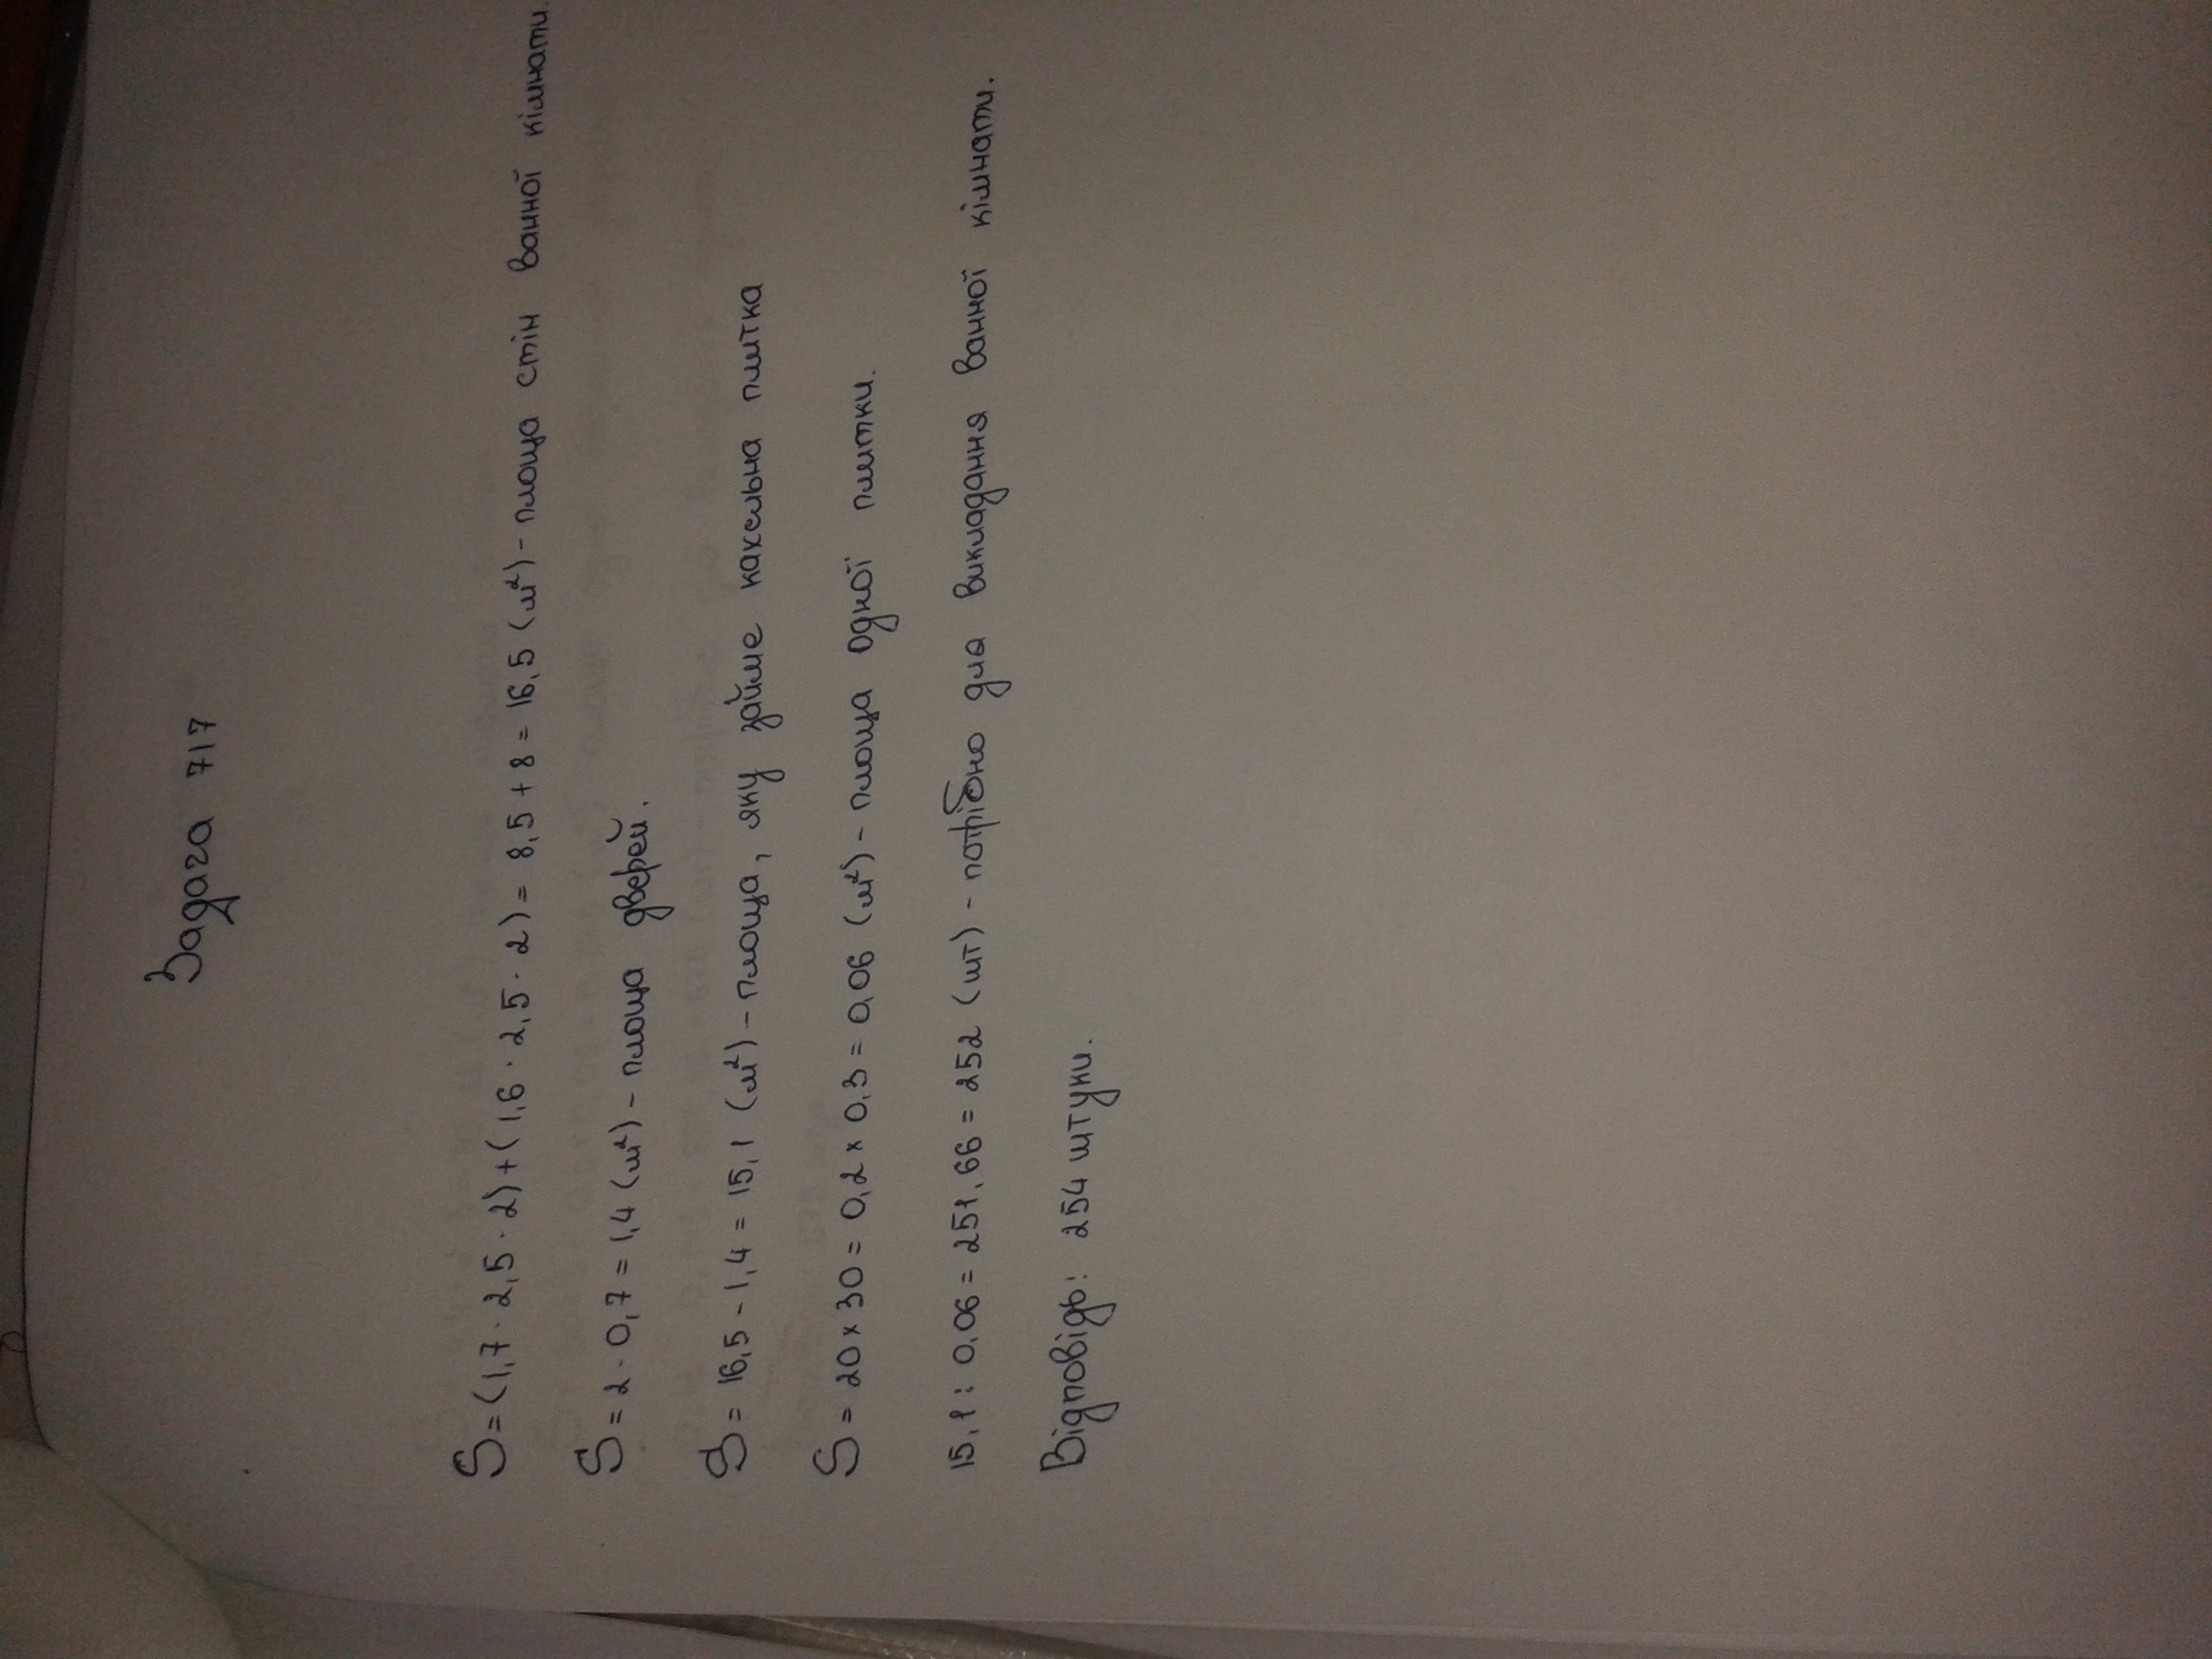 Задача 717
S = (1,7 · 2,5 · 2) + (1,6 · 2,5 · 2) = 8,5 + 8 = 16,5 (м²) - площа стін ванної кімнати.
S = 2 · 0,7 = 1,4 (м²) - площа дверей.
S = 16,5 - 1,4 = 15,1 (м²) - площа, яку займе кахельна плитка
S = 20 × 30 = 0,2 × 0,3 = 0,06 (м²) - площа одної плитки.
15,1 : 0,06 = 251,66 = 252 (шт) - потрібно для викладання ванної кімнати.
Відповідь: 254 штуки.